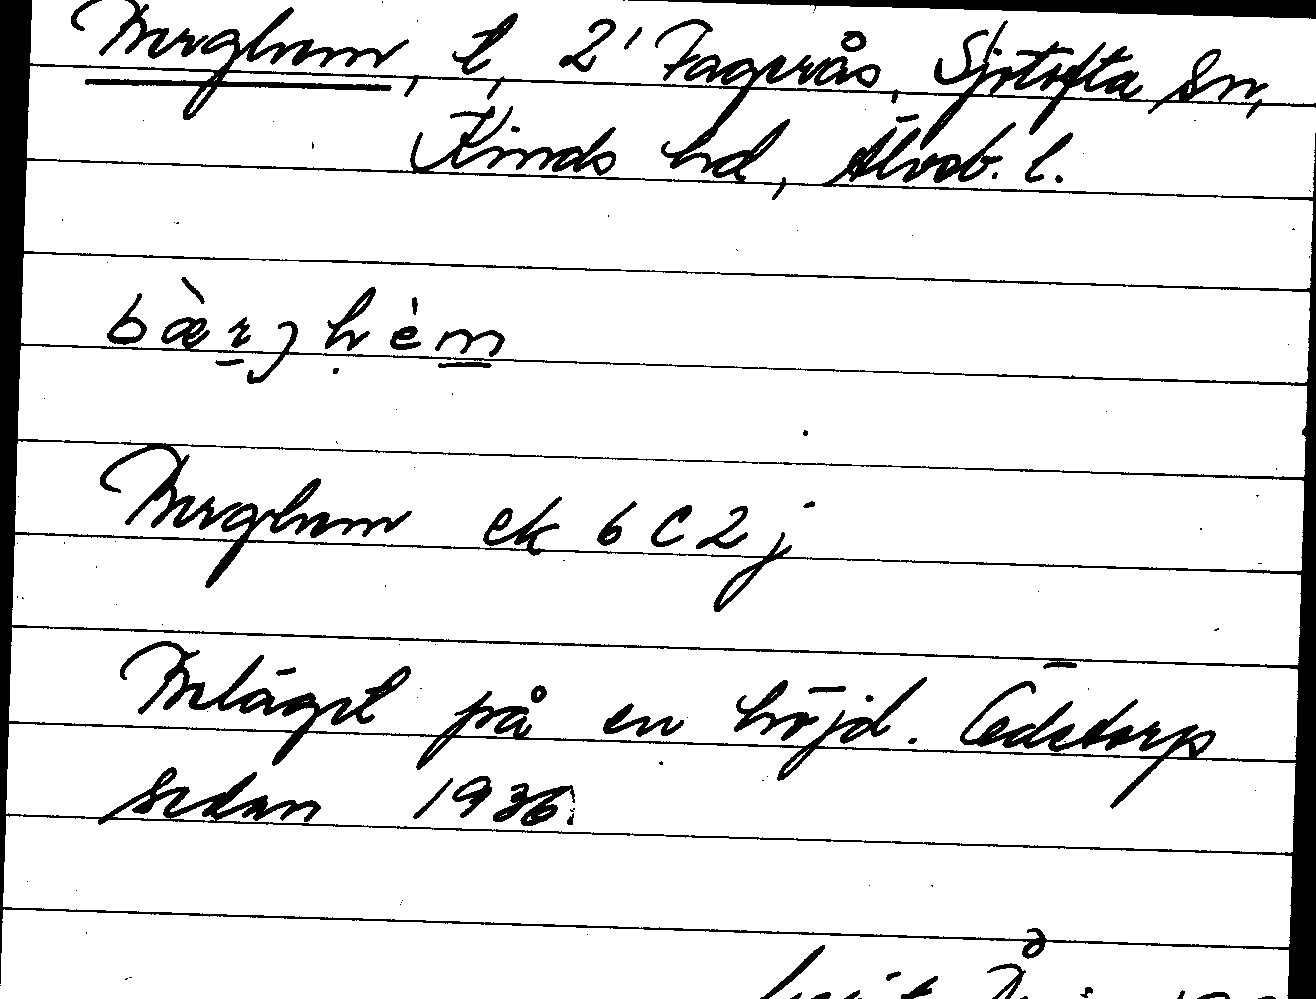 Berghem, t, 2' Fagerås, Sjötofta Sn,
Kinds hd, Älvsb. l.
bæ̀rghèm
Berghem ek 6 C 2 j
Beläget på en höjd. Ödetorp
sedan 1936.